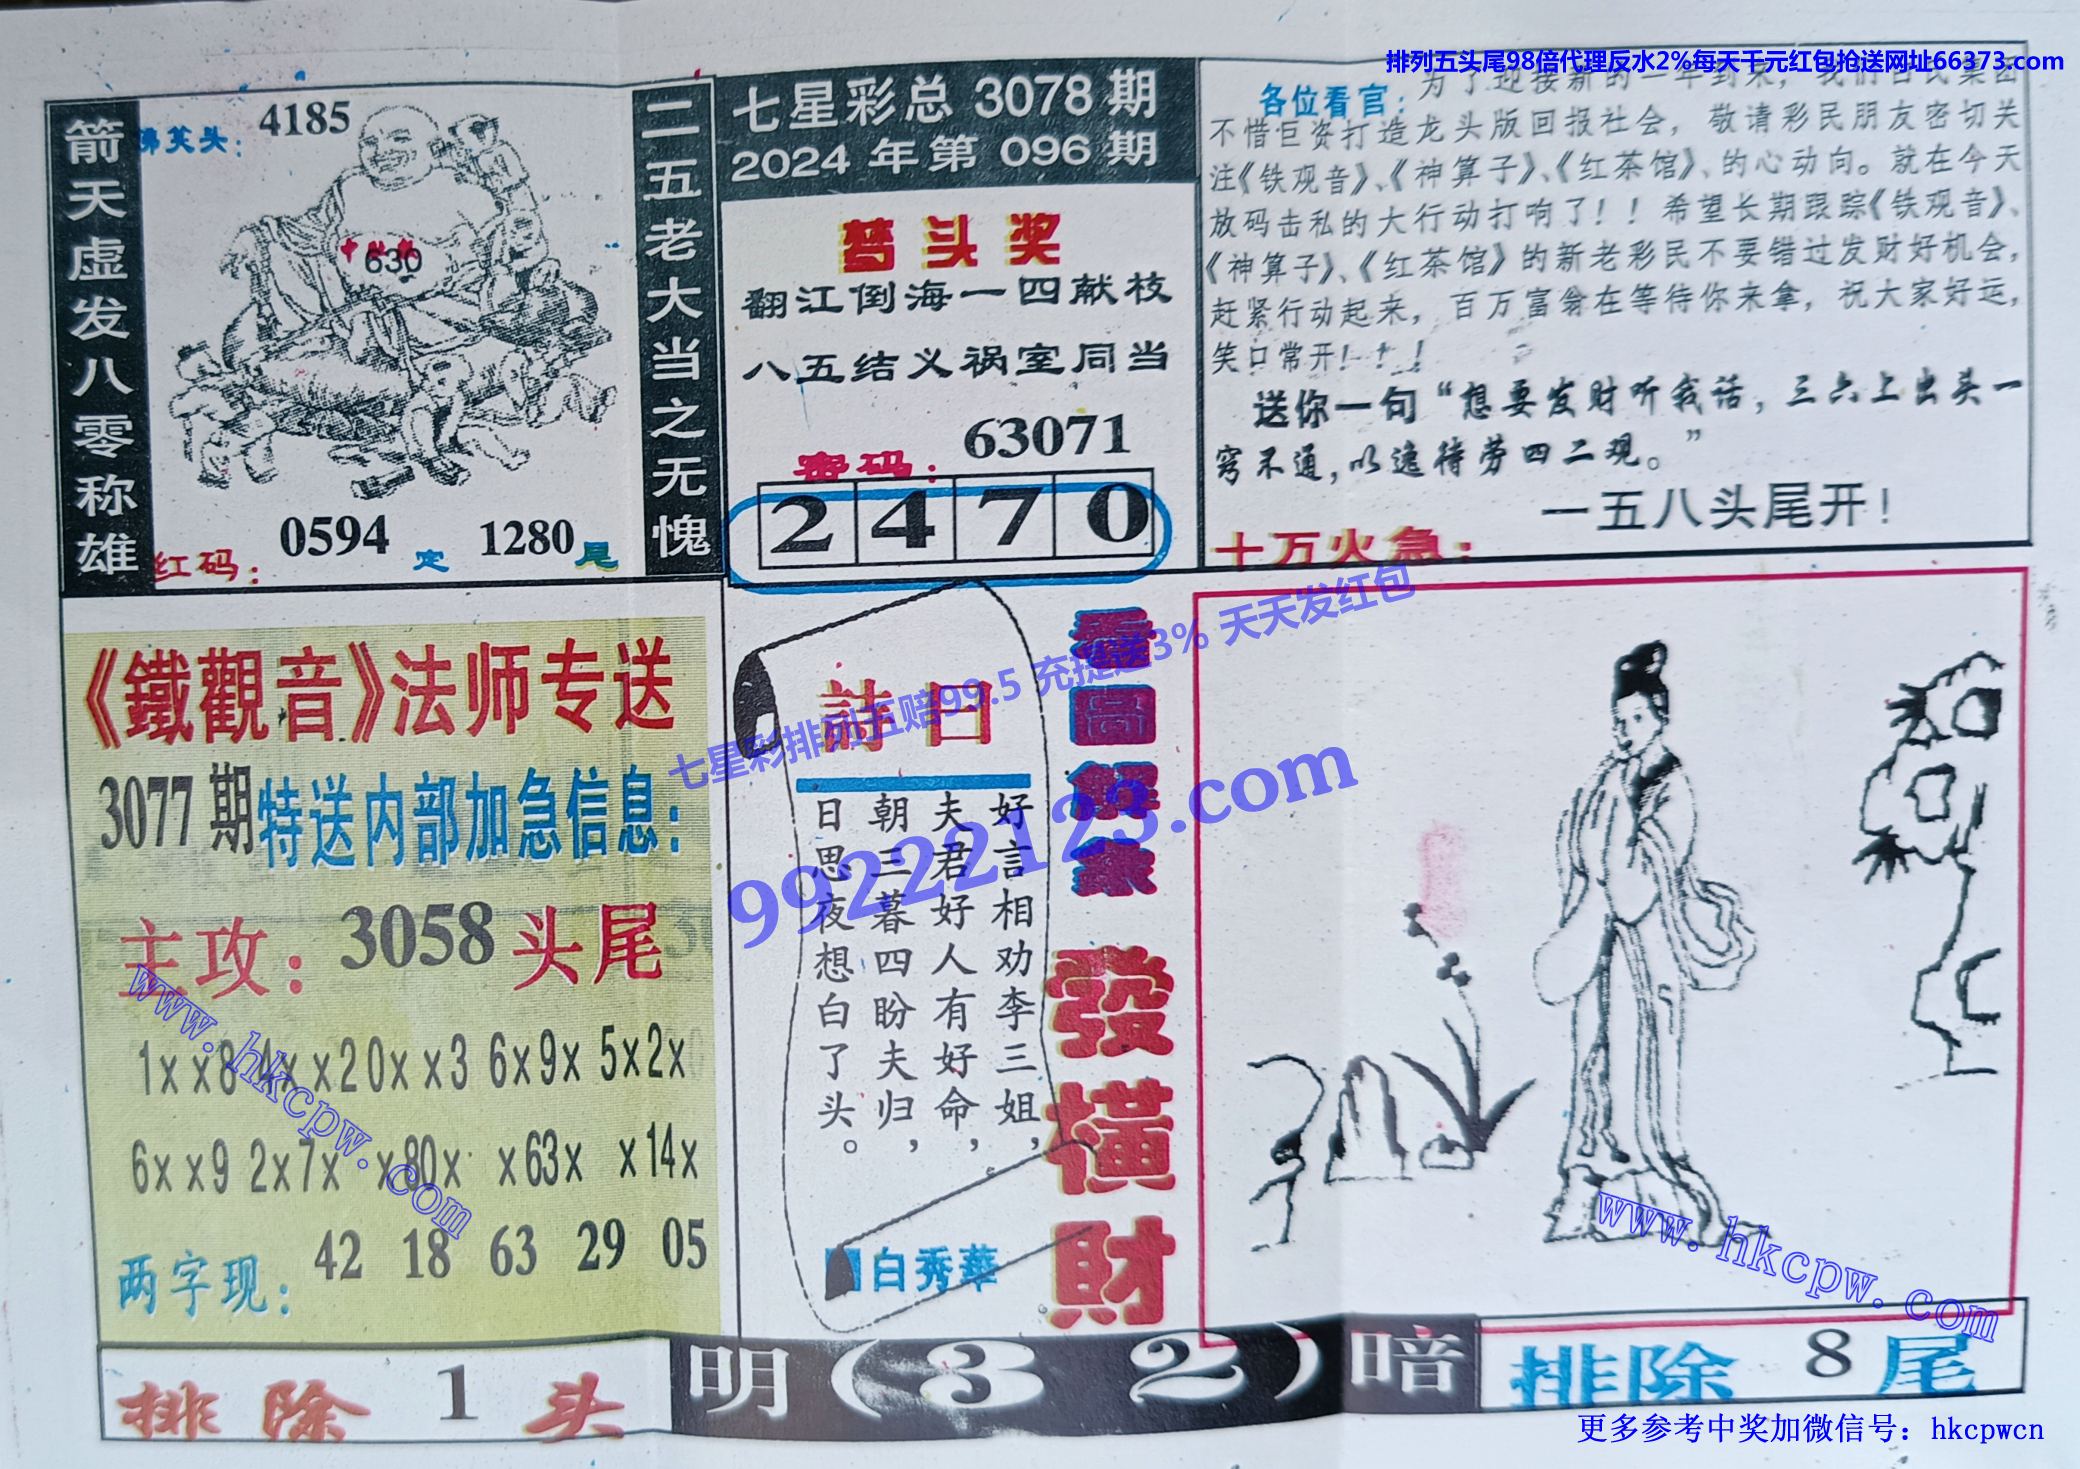 排列五头尾98倍代理反水2%每天千元红包抢送网址66373.com
箭天虚发八零称雄
佛笑头：4185
630
红码：0594 定 1280尾
二五老大当之无愧
七星彩总3078期
2024年第096期
梦头奖
翻江倒海一四献枝
八五结义祸室同当
密码：63071
2470
各位看官：为了迎接新的一年到来，我们白氏集团
不惜巨资打造龙头版回报社会，敬请彩民朋友密切关
注《铁观音》、《神算子》、《红茶馆》、的心动向。就在今天
放码击私的大行动打响了！！希望长期跟踪《铁观音》、
《神算子》、《红茶馆》的新老彩民不要错过发财好机会，
赶紧行动起来，百万富翁在等待你来拿，祝大家好运，
笑口常开！！！
送你一句“想要发财听我话，三六上出头一
穷不通，以逸待劳四二观。”
一五八头尾开！
十万火急：
《鐵觀音》法师专送
3077期特送内部加急信息：
主攻：3058头尾
1××8 4××2 0××3 6×9× 5×2×
6××9 2×7× ×80× ×63× ×14×
两字现：42 18 63 29 05
詩曰
好言相劝李三姐，
夫君好人有好命，
朝三暮四盼夫归，
日思夜想白了头。
白秀華
看圖解象
發橫財
七星彩排列五赔99.5 充提送3% 天天发红包
99222123.com
www.hkcpw.com
www.hkcpw.com
排除1头
明(32)暗
排除8尾
更多参考中奖加微信号：hkcpwcn